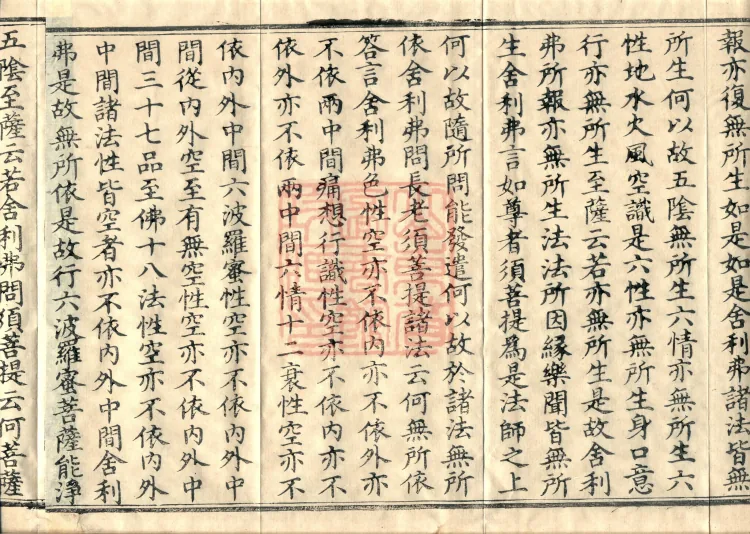 報亦復無所生如是如是舍利弗諸法皆無
所生何以故五陰無所生六情亦無所生六
性地水火風空識是六性亦無所生身口意
行亦無所生至薩云若亦無所生是故舍利
弗所報亦無所生法法所因緣樂聞皆無所
生舍利弗言如尊者須菩提為是法師之上
何以故隨所問能發遣何以故於諸法無所
依舍利弗問長老須菩提諸法云何無所依
答言舍利弗色性空亦不依內亦不依外亦
不依兩中間痛想行識性空亦不依內亦不
依外亦不依兩中間六情十二衰性空亦不
依內外中間六波羅蜜性空亦不依內外中
間從內外空至有無空性空亦不依內外中
間三十七品至佛十八法性空亦不依內外
中間諸法性皆空者亦不依內外中間舍利
弗是故無所依是故行六波羅蜜菩薩能淨
五陰至薩云若舍利弗問須菩提云何菩薩